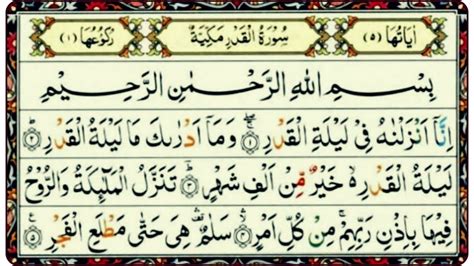 اٰيَاتُهَا (٥) سُوْرَةُ الْقَدْرِ مَكِّيَّةٌ رُكُوْعُهَا (١)
بِسْمِ اللهِ الرَّحْمٰنِ الرَّحِيْمِ
اِنَّاۤ اَنْزَلْنٰهُ فِيْ لَيْلَةِ الْقَدْرِ ۚۖ ﴿١﴾ وَمَاۤ اَدْرٰىكَ مَا لَيْلَةُ الْقَدْرِ ؕ ﴿٢﴾
لَيْلَةُ الْقَدْرِ ۙ۬ خَيْرٌ مِّنْ اَلْفِ شَهْرٍ ؕ ﴿٣﴾ تَنَزَّلُ الْمَلٰٓئِكَةُ وَالرُّوْحُ
فِيْهَا بِاِذْنِ رَبِّهِمْ ۚ مِنْ كُلِّ اَمْرٍ ۙۛ ﴿٤﴾ سَلٰمٌ ۛ۫ هِيَ حَتّٰى مَطْلَعِ الْفَجْرِ ﴿٥﴾